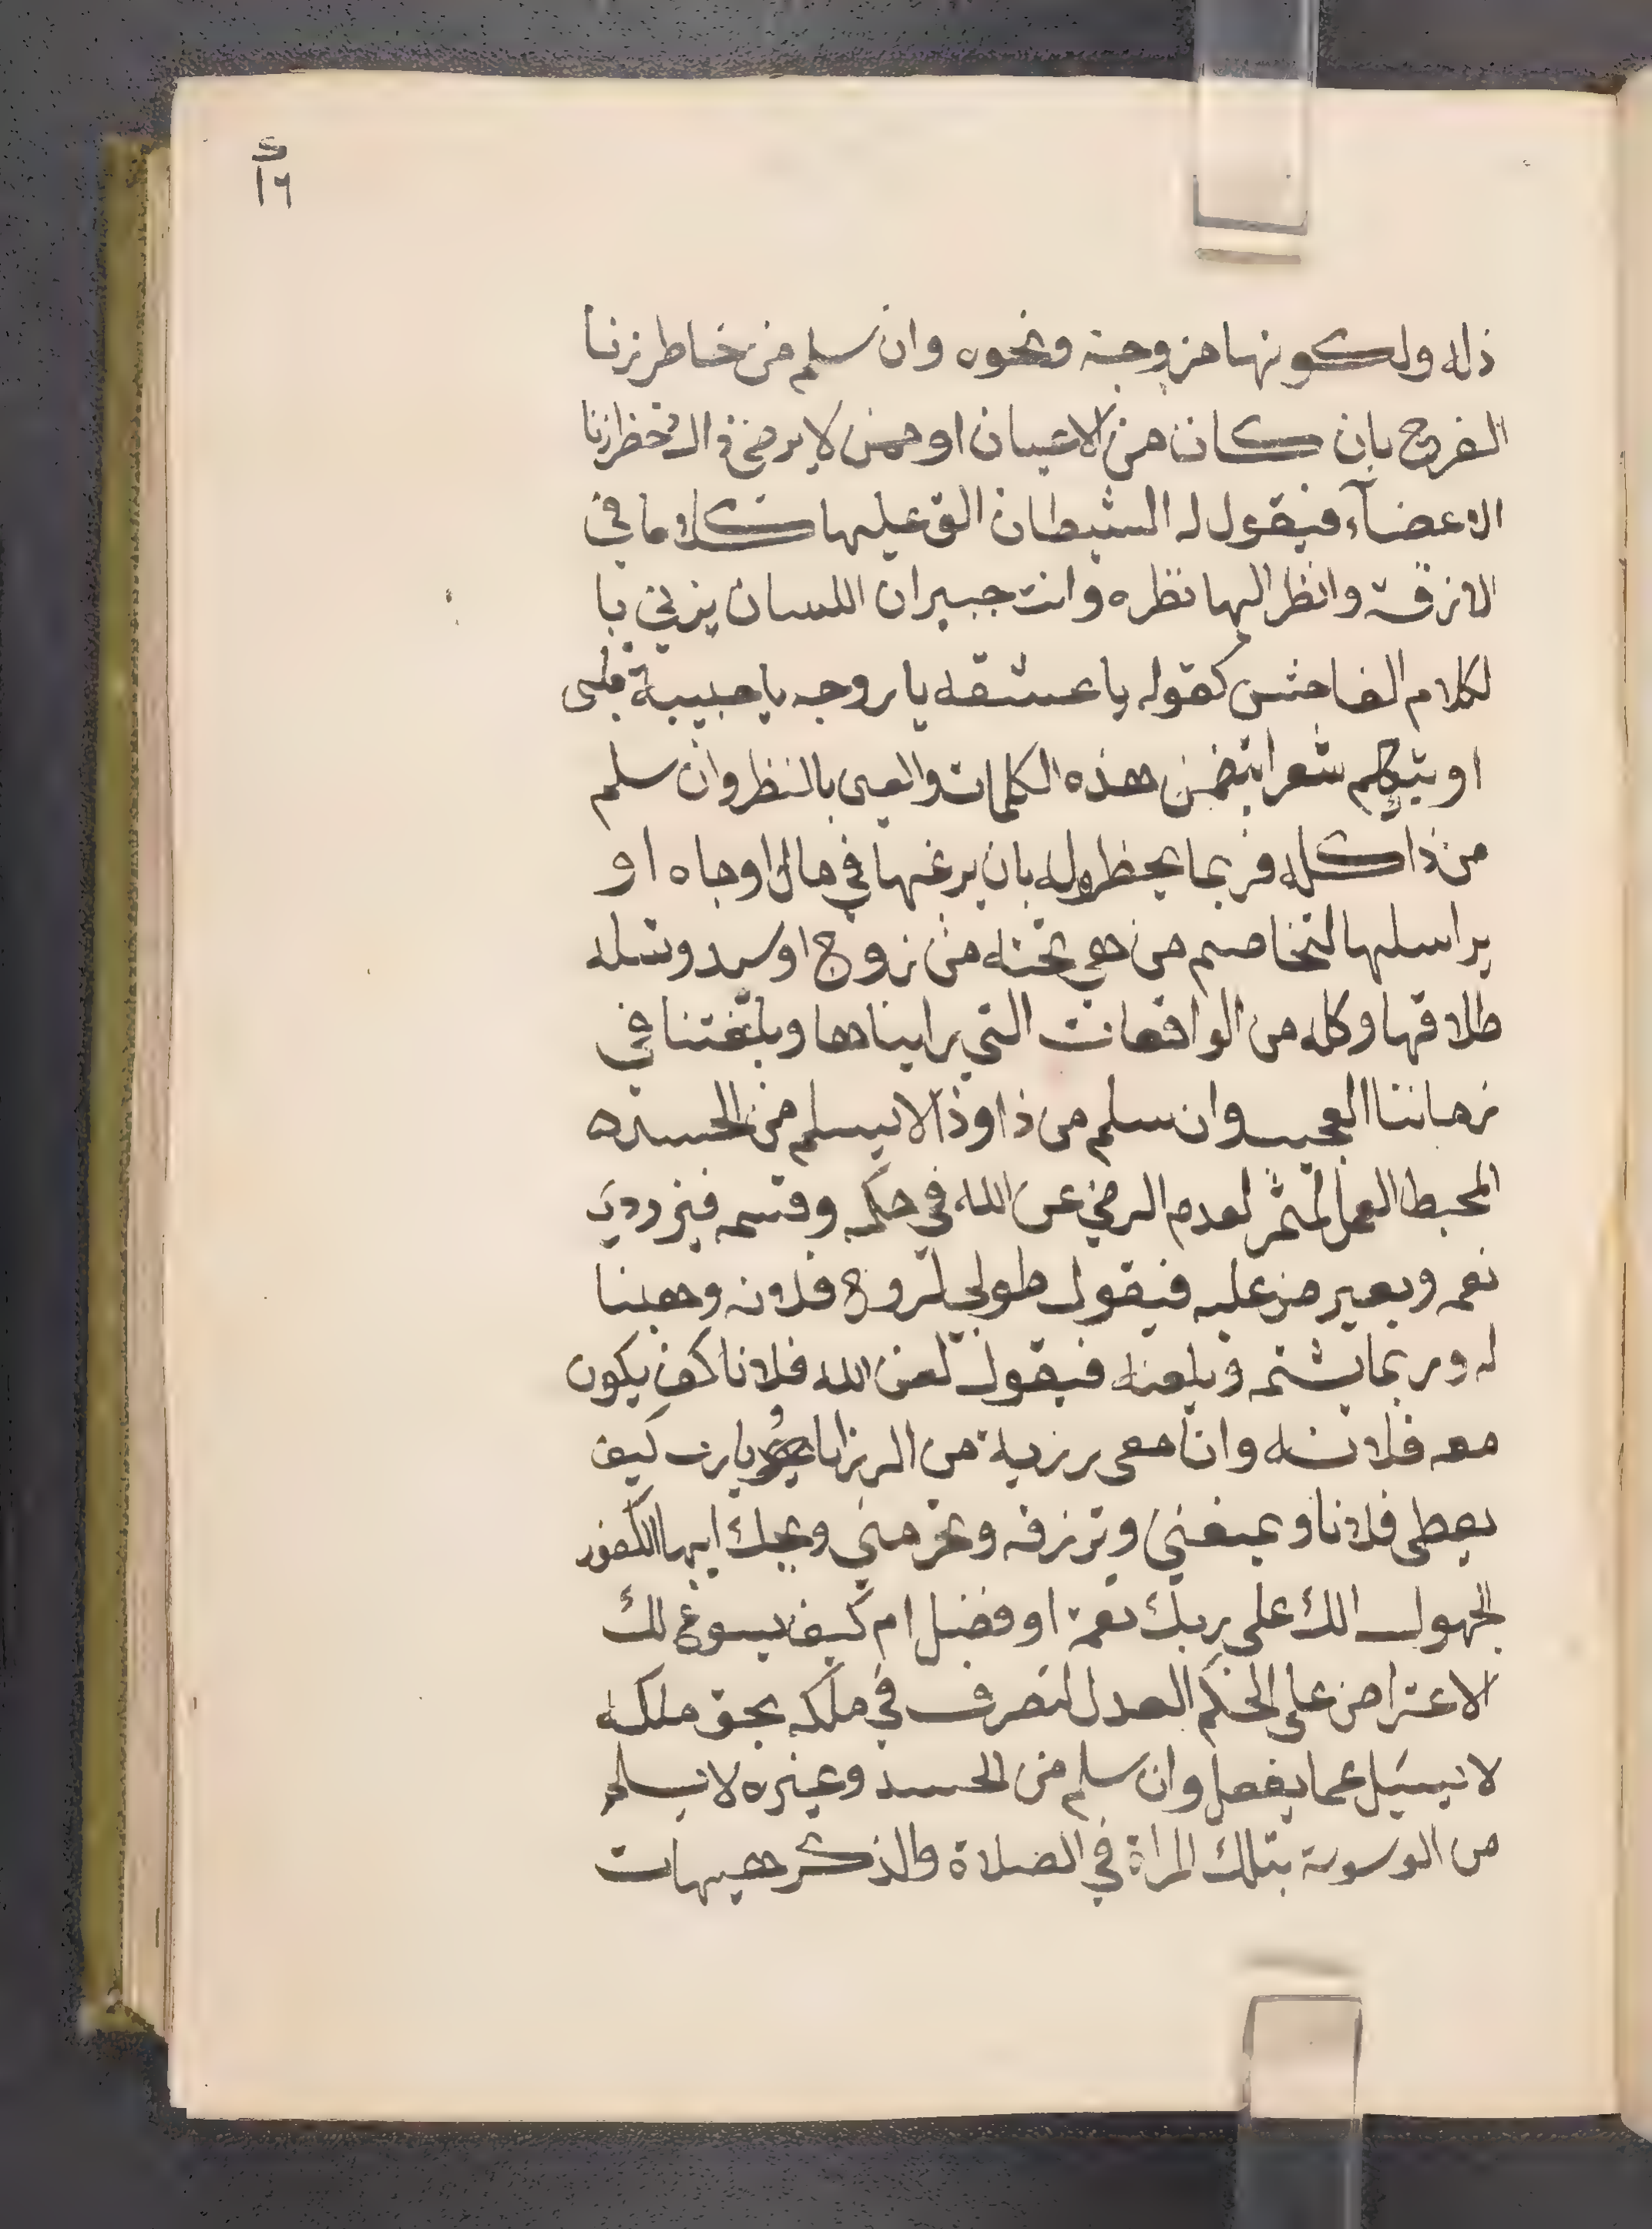 ١٦
ذله ولكونها مزوجة ونحوه وان سلم من خاطر زنا
الفرج بان كان من الاعيان او ممن لا يرضى ذالك خطر زنا
الاعضآء فيقول له الشيطان الق عليها كلاما في
الازقة وانظر اليها نظره وانت جبير ان اللسان يزني با
لكلام الفاحش كقوله يا عشقه يا روحه يا حبيبة قلبى
او يتكلم شعرا يتضمن هذه الكلمات والعين بالنظر وان سلم
من ذا كله فربما يخطر له بان يرغبها في مال او جاه او
يراسلها لتخاصم من هي تحته من زوج او سيد وتسله
طلاقها وكله من الواقعات التي رايناها وبلغتنا في
زماننا العجيب وان سلم من ذا وذا لا يسلم من الحسده
المحبط العمل المثمر لعدم الرضى عن الله في حكمه وقسمه فيزدري
نعمه ويعترض عليه فيقول طوبى لزوج فلانه وهنينا
له وربما يشتمه ويلعنه فيقول لعن الله فلانا كيف يكون
معه فلانه وانا معى رزية من الرزايا يارب كيف
يعطى فلانا ويمنعني وترزقه وتحرمني ويحك ايها الكفور
الجهول الك على ربك نعمة او فضل ام كيف يسوغ لك
الاعتراض على الحكم العدل المتصرف في ملكه بحق ملكه
لا يسئل عما يفعل وان سلم من الحسد وغيره لا يسلم
من الوسوسة بتلك المراة في الصلاة والذكر هيهات